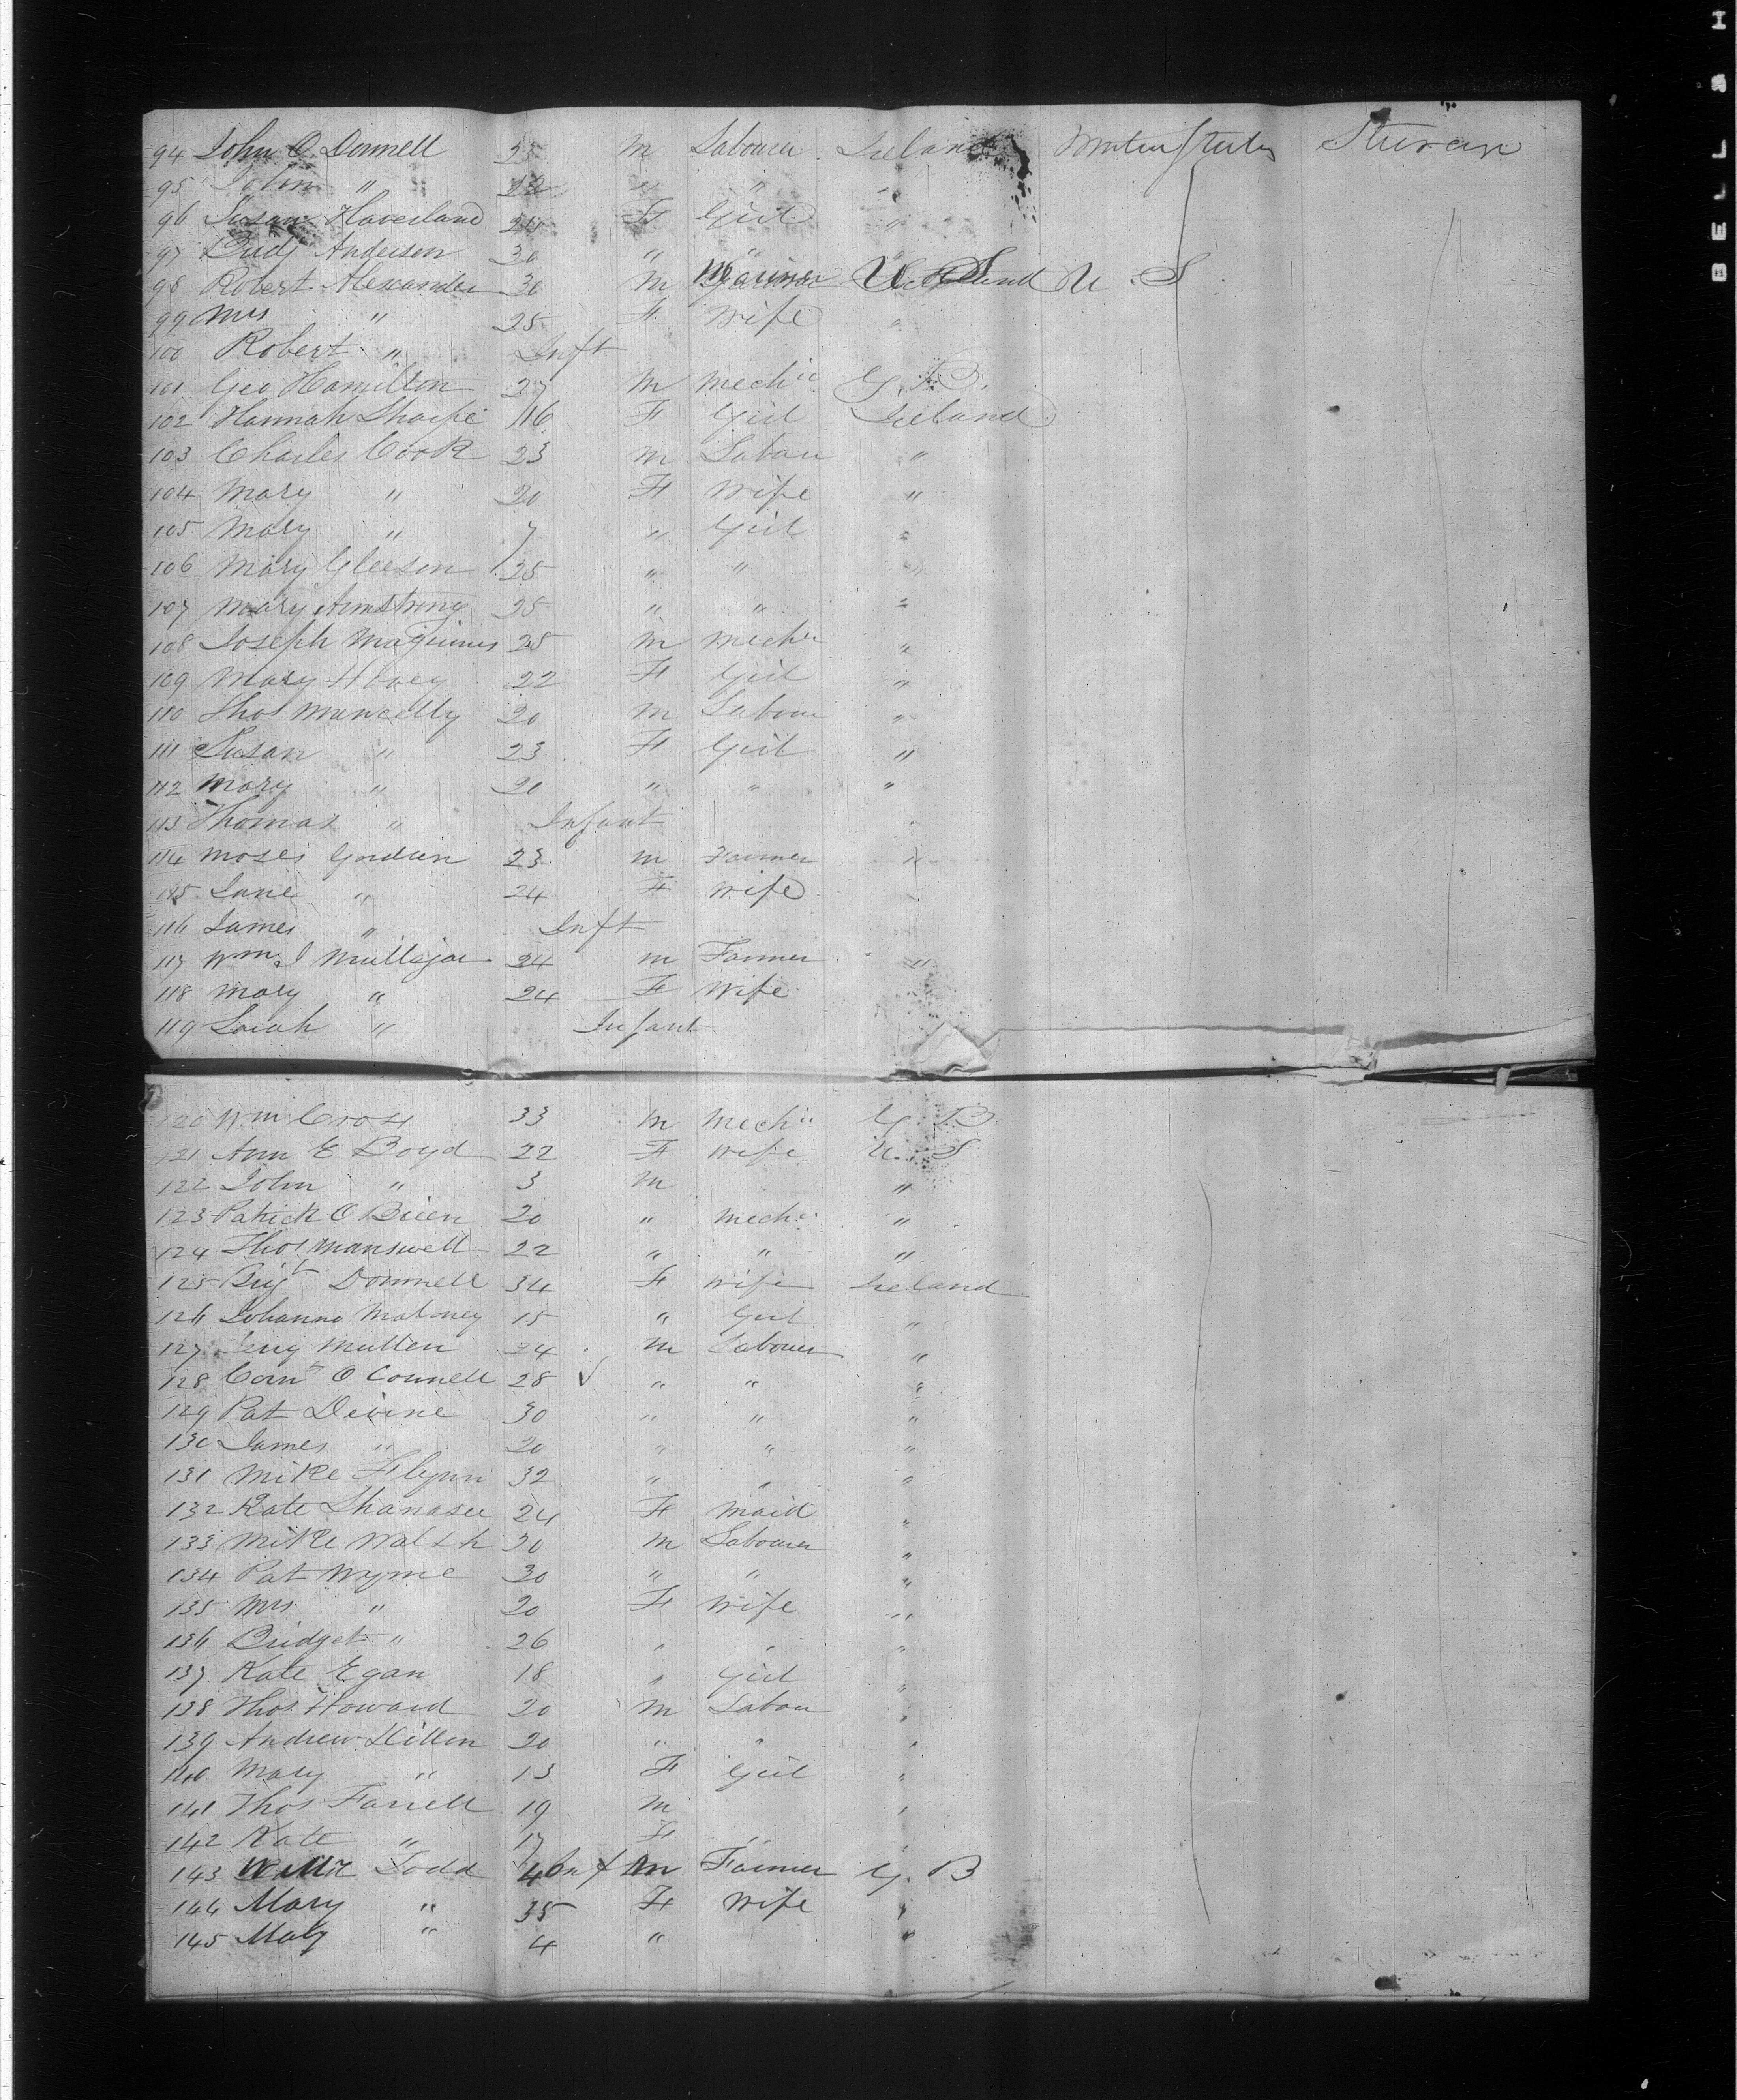 94 John O. Donnell 25 M Labourer Ireland United States Steerage
95 John " 22 " " "
96 Susan Haverland 24 F Girl "
97 Bridj Anderson 30 " " "
98 Robert Alexander 30 M U. S. U. S
99 Mrs " 25 F Wife "
100 Robert " Inft
101 Geo Hamilton 27 M Mechic G. B.
102 Hannah Sharpe 16 F Girl Ireland
103 Charles Cook 23 M Labour "
104 Mary " 20 F Wife "
105 Mary " 7 " Girl "
106 Mary Gleeson 25 " " "
107 Mary Armstrong 25 " " "
108 Joseph Maginnis 25 M Mechc "
109 Mary Hovey 22 F Girl "
110 Thos Muncelly 20 M Labour "
111 Susan " 23 F Girl "
112 Mary " 20 " " "
113 Thomas " Infant "
114 Moses Gordien 23 M Farmer "
115 Jane " 24 F Wife "
116 James " Inft
117 Wm J 24 M Farmer "
118 Mary " 24 F Wife
119 Sarah " Infant
120 Wm Cross 33 M Mechic G. B.
121 Ann E Boyd 22 F Wife U. S
122 John " 3 M "
123 Patrick O Brien 20 " Mechc "
124 Thos Manswell 22 " " "
125 Brigt Donnell 34 F Wife Ireland
126 Johanna Maloney 15 " Girl "
127 Jerry Mullen 24 M Labourer "
128 Corns O Connell 28 " " "
129 Pat Devine 30 " " "
130 James " 20 " " "
131 Mike Flynn 32 " " "
132 Kate Shanasee 24 F Maid "
133 Mike Walsh 20 M Labourer "
134 Pat Wynne 30 " " "
135 Mrs " 20 F Wife "
136 Bridget " 26 " " "
137 Kate Egan 18 " Girl "
138 Thos Howard 20 M Labour "
139 Andrew Dillon 20 " " "
140 Mary " 13 F Girl "
141 Thos Farrell 19 M "
142 Kate " 17 F " "
143 Todd M Farmer G. B
144 Mary " 35 F Wife "
145 Mary " 4 " "
BELL & H